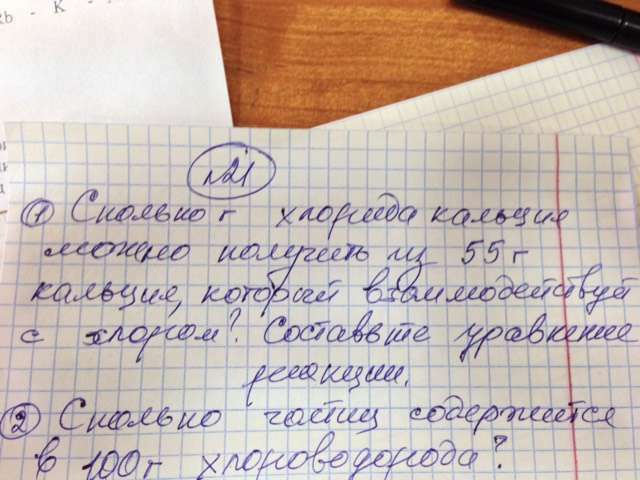 Rb - K -
№21
① Сколько г хлорида кальция
можно получить из 55 г
кальция, который взаимодействуй
с хлором? Составьте уравнение
реакции.
② Сколько частиц содержится
в 100 г хлороводорода?